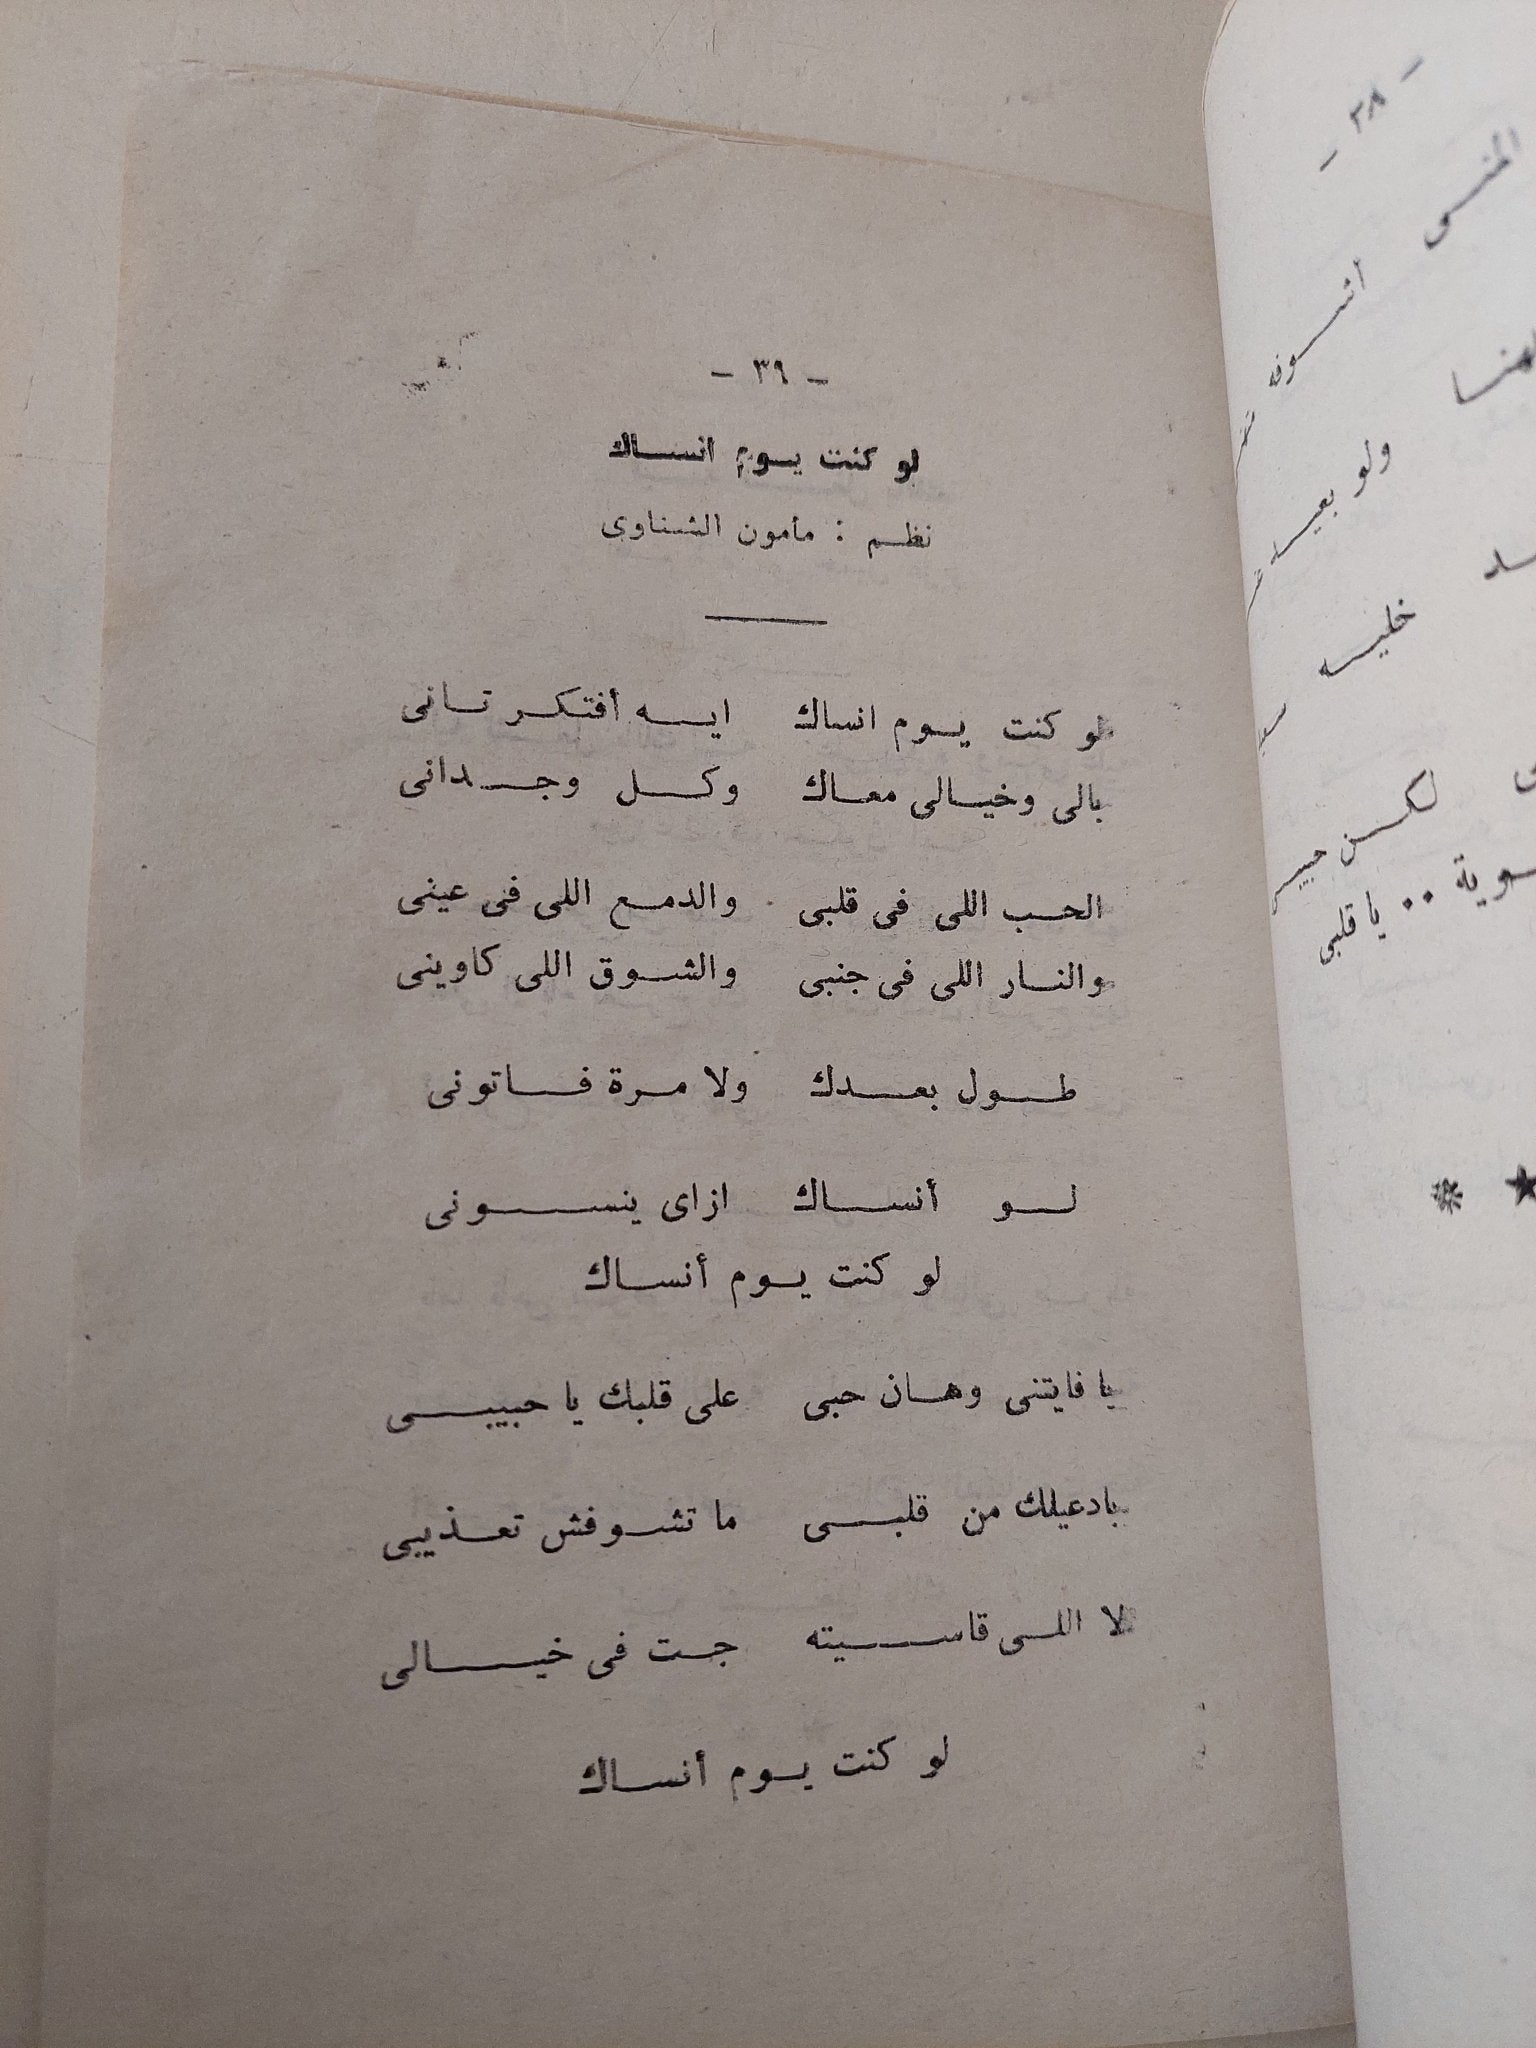 - ٣٩ -
لو كنت يوم انساك
نظم : مأمون الشناوى
لو كنت يوم انساك ايه أفتكر تانى
بالى وخيالى معاك وكل وجدانى
الحب اللى فى قلبى والدمع اللى فى عينى
والنار اللى فى جنبى والشوق اللى كاوينى
طول بعدك ولا مرة فاتونى
لو أنساك ازاى ينسونى
لو كنت يوم أنساك
يا فايتنى وهان حبى على قلبك يا حبيبى
بادعيلك من قلبى ما تشوفش تعذيبى
لا اللى قاسيته جت فى خيالى
لو كنت يوم أنساك
- ٣٨ -
المنى اشوفه
ولو بعيد
خليه
لكن
يا قلبى